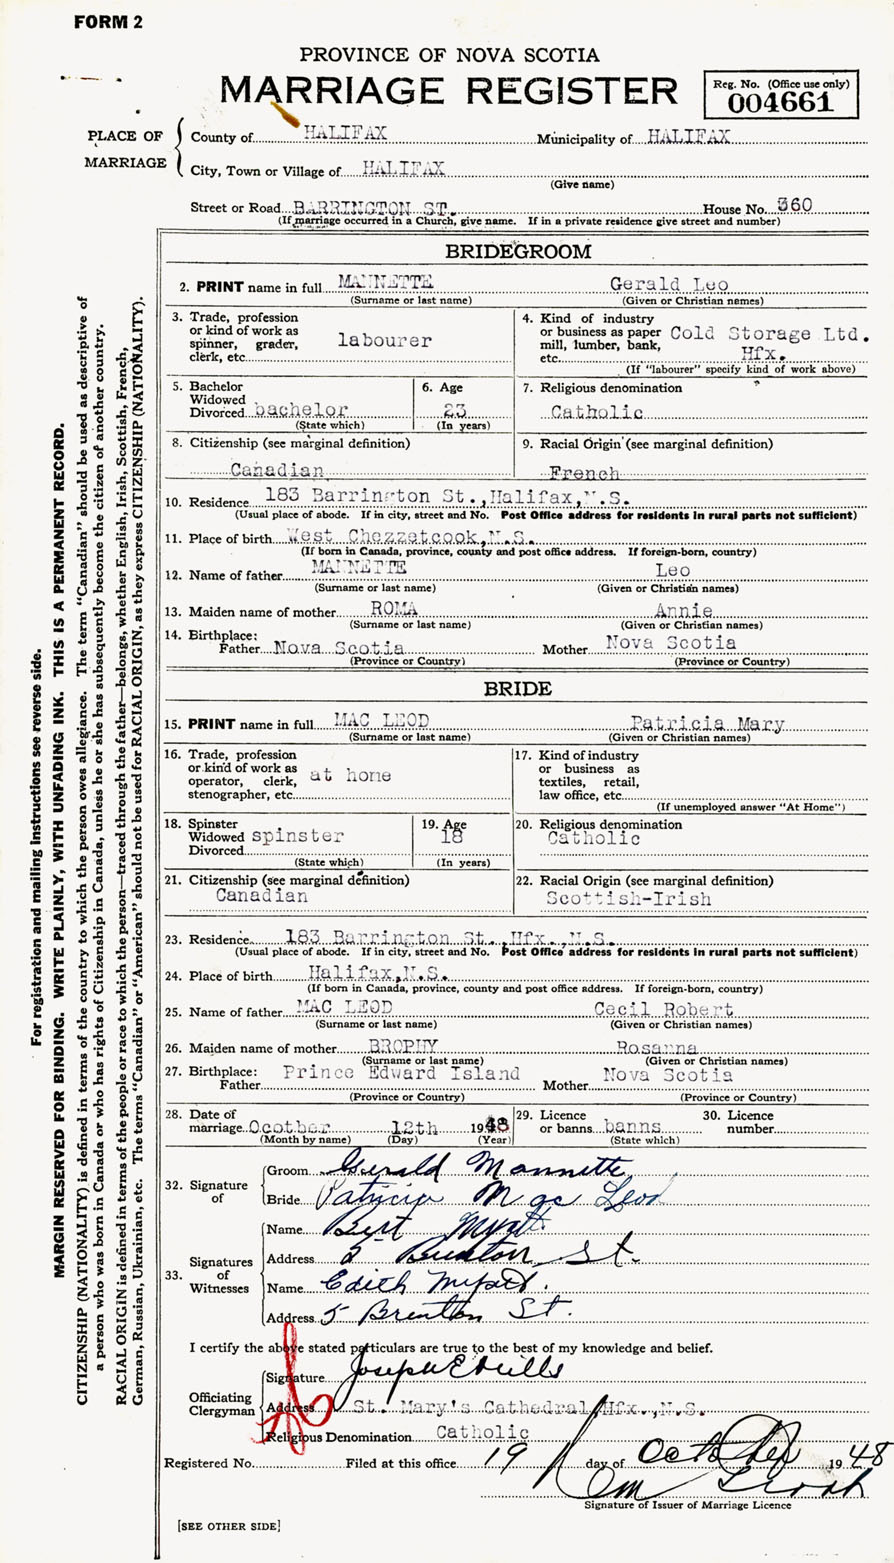 FORM 2
PROVINCE OF NOVA SCOTIA
MARRIAGE REGISTER
Reg. No. (Office use only)
004661
PLACE OF MARRIAGE
County of HALIFAX Municipality of HALIFAX
City, Town or Village of HALIFAX
(Give name)
Street or Road BARRINGTON ST. House No. 360
(If marriage occurred in a Church, give name. If in a private residence give street and number)
For registration and mailing instructions see reverse side.
MARGIN RESERVED FOR BINDING. WRITE PLAINLY, WITH UNFADING INK. THIS IS A PERMANENT RECORD.
CITIZENSHIP (NATIONALITY) is defined in terms of the country to which the person owes allegiance. The term "Canadian" should be used as descriptive of
a person who was born in Canada or who has rights of Citizenship in Canada, unless he or she has subsequently become the citizen of another country.
RACIAL ORIGIN is defined in terms of the people or race to which the person—traced through the father—belongs, whether English, Irish, Scottish, French,
German, Russian, Ukrainian, etc. The terms "Canadian" or "American" should not be used for RACIAL ORIGIN, as they express CITIZENSHIP (NATIONALITY).
BRIDEGROOM
2. PRINT name in full MANNETTE Gerald Leo
(Surname or last name) (Given or Christian names)
3. Trade, profession
or kind of work as
spinner, grader,
clerk, etc. labourer
4. Kind of industry
or business as paper
mill, lumber, bank,
etc. Cold Storage Ltd.
Hfx.
(If "labourer" specify kind of work above)
5. Bachelor
Widowed
Divorced bachelor
(State which)
6. Age
23
(In years)
7. Religious denomination
Catholic
8. Citizenship (see marginal definition)
Canadian
9. Racial Origin (see marginal definition)
French
10. Residence 183 Barrington St.,Halifax,N.S.
(Usual place of abode. If in city, street and No. Post Office address for residents in rural parts not sufficient)
11. Place of birth West Chezzetcook,N.S.
(If born in Canada, province, county and post office address. If foreign-born, country)
12. Name of father MANNETTE Leo
(Surname or last name) (Given or Christian names)
13. Maiden name of mother ROMA Annie
(Surname or last name) (Given or Christian names)
14. Birthplace:
Father Nova Scotia Mother Nova Scotia
(Province or Country) (Province or Country)
BRIDE
15. PRINT name in full MAC LEOD Patricia Mary
(Surname or last name) (Given or Christian names)
16. Trade, profession
or kind of work as
operator, clerk,
stenographer, etc. at home
17. Kind of industry
or business as
textiles, retail,
law office, etc.
(If unemployed answer "At Home")
18. Spinster
Widowed
Divorced spinster
(State which)
19. Age
18
(In years)
20. Religious denomination
Catholic
21. Citizenship (see marginal definition)
Canadian
22. Racial Origin (see marginal definition)
Scottish-Irish
23. Residence 183 Barrington St.,Hfx.,N.S.
(Usual place of abode. If in city, street and No. Post Office address for residents in rural parts not sufficient)
24. Place of birth Halifax,N.S.
(If born in Canada, province, county and post office address. If foreign-born, country)
25. Name of father MAC LEOD Cecil Robert
(Surname or last name) (Given or Christian names)
26. Maiden name of mother BROPHY Rosanna
(Surname or last name) (Given or Christian names)
27. Birthplace: Prince Edward Island Nova Scotia
Father Mother
(Province or Country) (Province or Country)
28. Date of
marriage Ocotber 12th 1948
(Month by name) (Day) (Year)
29. Licence
or banns banns
(State which)
30. Licence
number
32. Signature of
Groom Gerald Mannette
Bride Patricia Mac Leod
33. Signatures of Witnesses
Name Bert Myatt
Address 5 Brenton St.
Name Edith Myatt.
Address 5 Brenton St.
I certify the above stated particulars are true to the best of my knowledge and belief.
Officiating Clergyman
Signature Joseph E Mills
Address St. Mary's Cathedral,Hfx.,N.S.
Religious Denomination Catholic
Registered No. Filed at this office 19 day of October 1948
Signature of Issuer of Marriage Licence
[SEE OTHER SIDE]